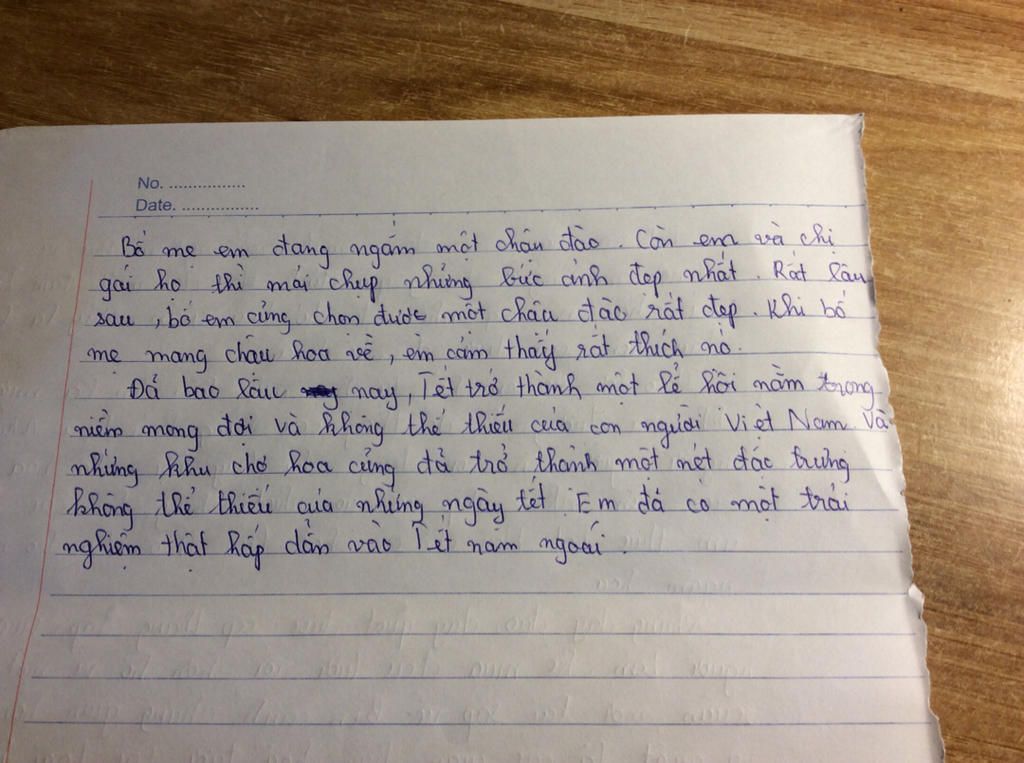 No. ................
Date. ................
Bố mẹ em đang ngắm một chậu đào. Còn em và chị
gái họ thì mải chụp những bức ảnh đẹp nhất. Rất lâu
sau, bố em cũng chọn được một chậu đào rất đẹp. Khi bố
mẹ mang chậu hoa về, em cảm thấy rất thích nó.
Đã bao lâu nay, Tết trở thành một lễ hội nằm trong
niềm mong đợi và không thể thiếu của con người Việt Nam và
những khu chợ hoa cũng đã trở thành một nét đặc trưng
không thể thiếu của những ngày tết. Em đã có một trải
nghiệm thật hấp dẫn vào Tết năm ngoái.